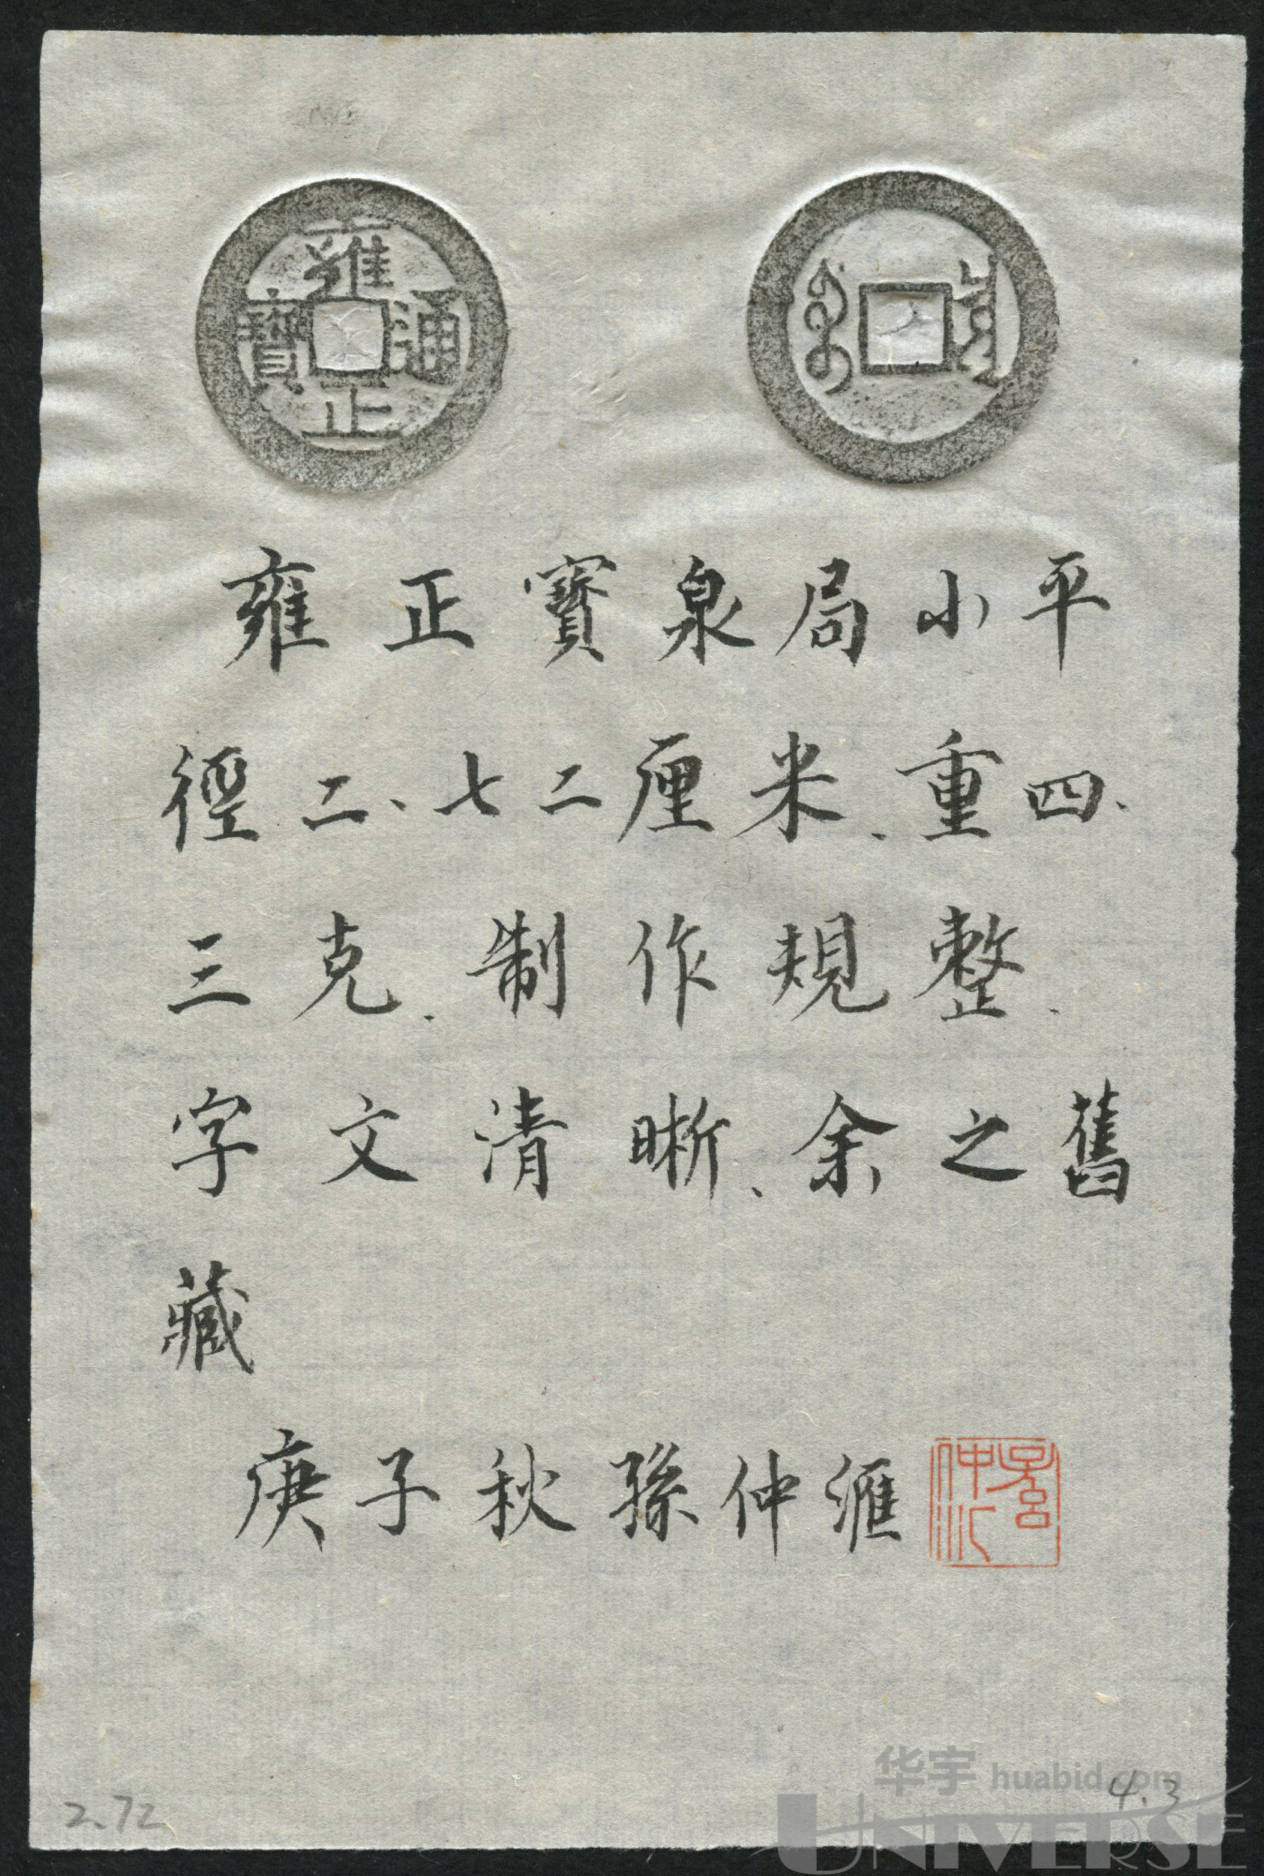 雍正通寶
雍正寶泉局小平
徑二、七二厘米、重四、
三克、制作規整、
字文清晰、余之舊
藏
庚子秋孫仲滙
孫仲汇
2.72
4.3
华宇 huabid.com
UNIVERSE